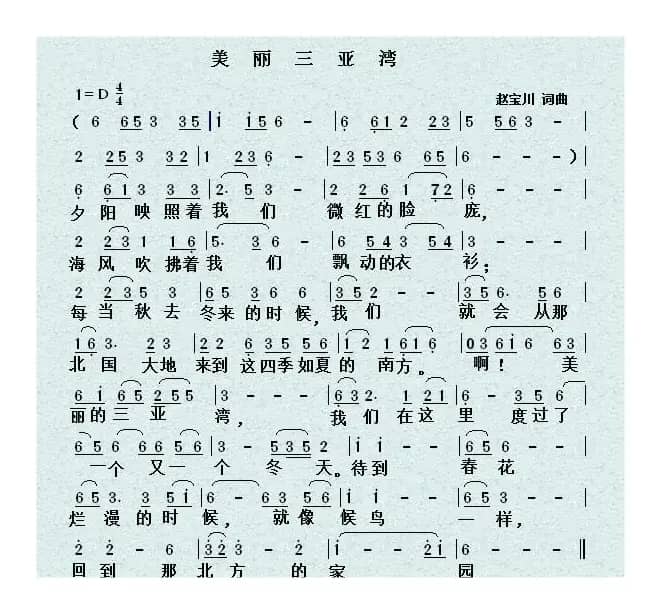 美丽三亚湾
1=D 4/4
赵宝川 词曲
( 6 653 35 | i i56 - | 6 612 23 | 5 563 - |
2 253 32 | 1 236 - | 23536 65 | 6 - - ) |
6 613 3 3 | 2· 53 - | 2 261 72 | 6 - - |
夕阳映照着我们 微红的脸 庞,
2 231 16 | 5· 36 - | 6 543 54 | 3 - - |
海风吹拂着我们 飘动的衣 衫;
2 235 3 | 65 36 6 | 352 - - | 356· 56 |
每当秋去 冬来的时候,我们 就会 从那
163· 23 | 22 635 56 | i2 1616 | 036i6 63 |
北国 大地 来到 这四季如夏的 南方。 啊! 美
6i 65 255 | 3 - - | 632· 121 | 6 - 356 |
丽的三亚 湾, 我们 在这里 度过了
656 66 56 | 3 - 5352 | i i - - | 656 - |
一个 又一个 冬 天。待到 春花
653· 3 5i | 6 - 63 56 | i i - - | 653 - |
烂漫的时 候, 就像 候鸟 一样,
2 2 - 6 | 323· 2 | i - - 2i | 6 - - ‖
回到 那北方 的家 园